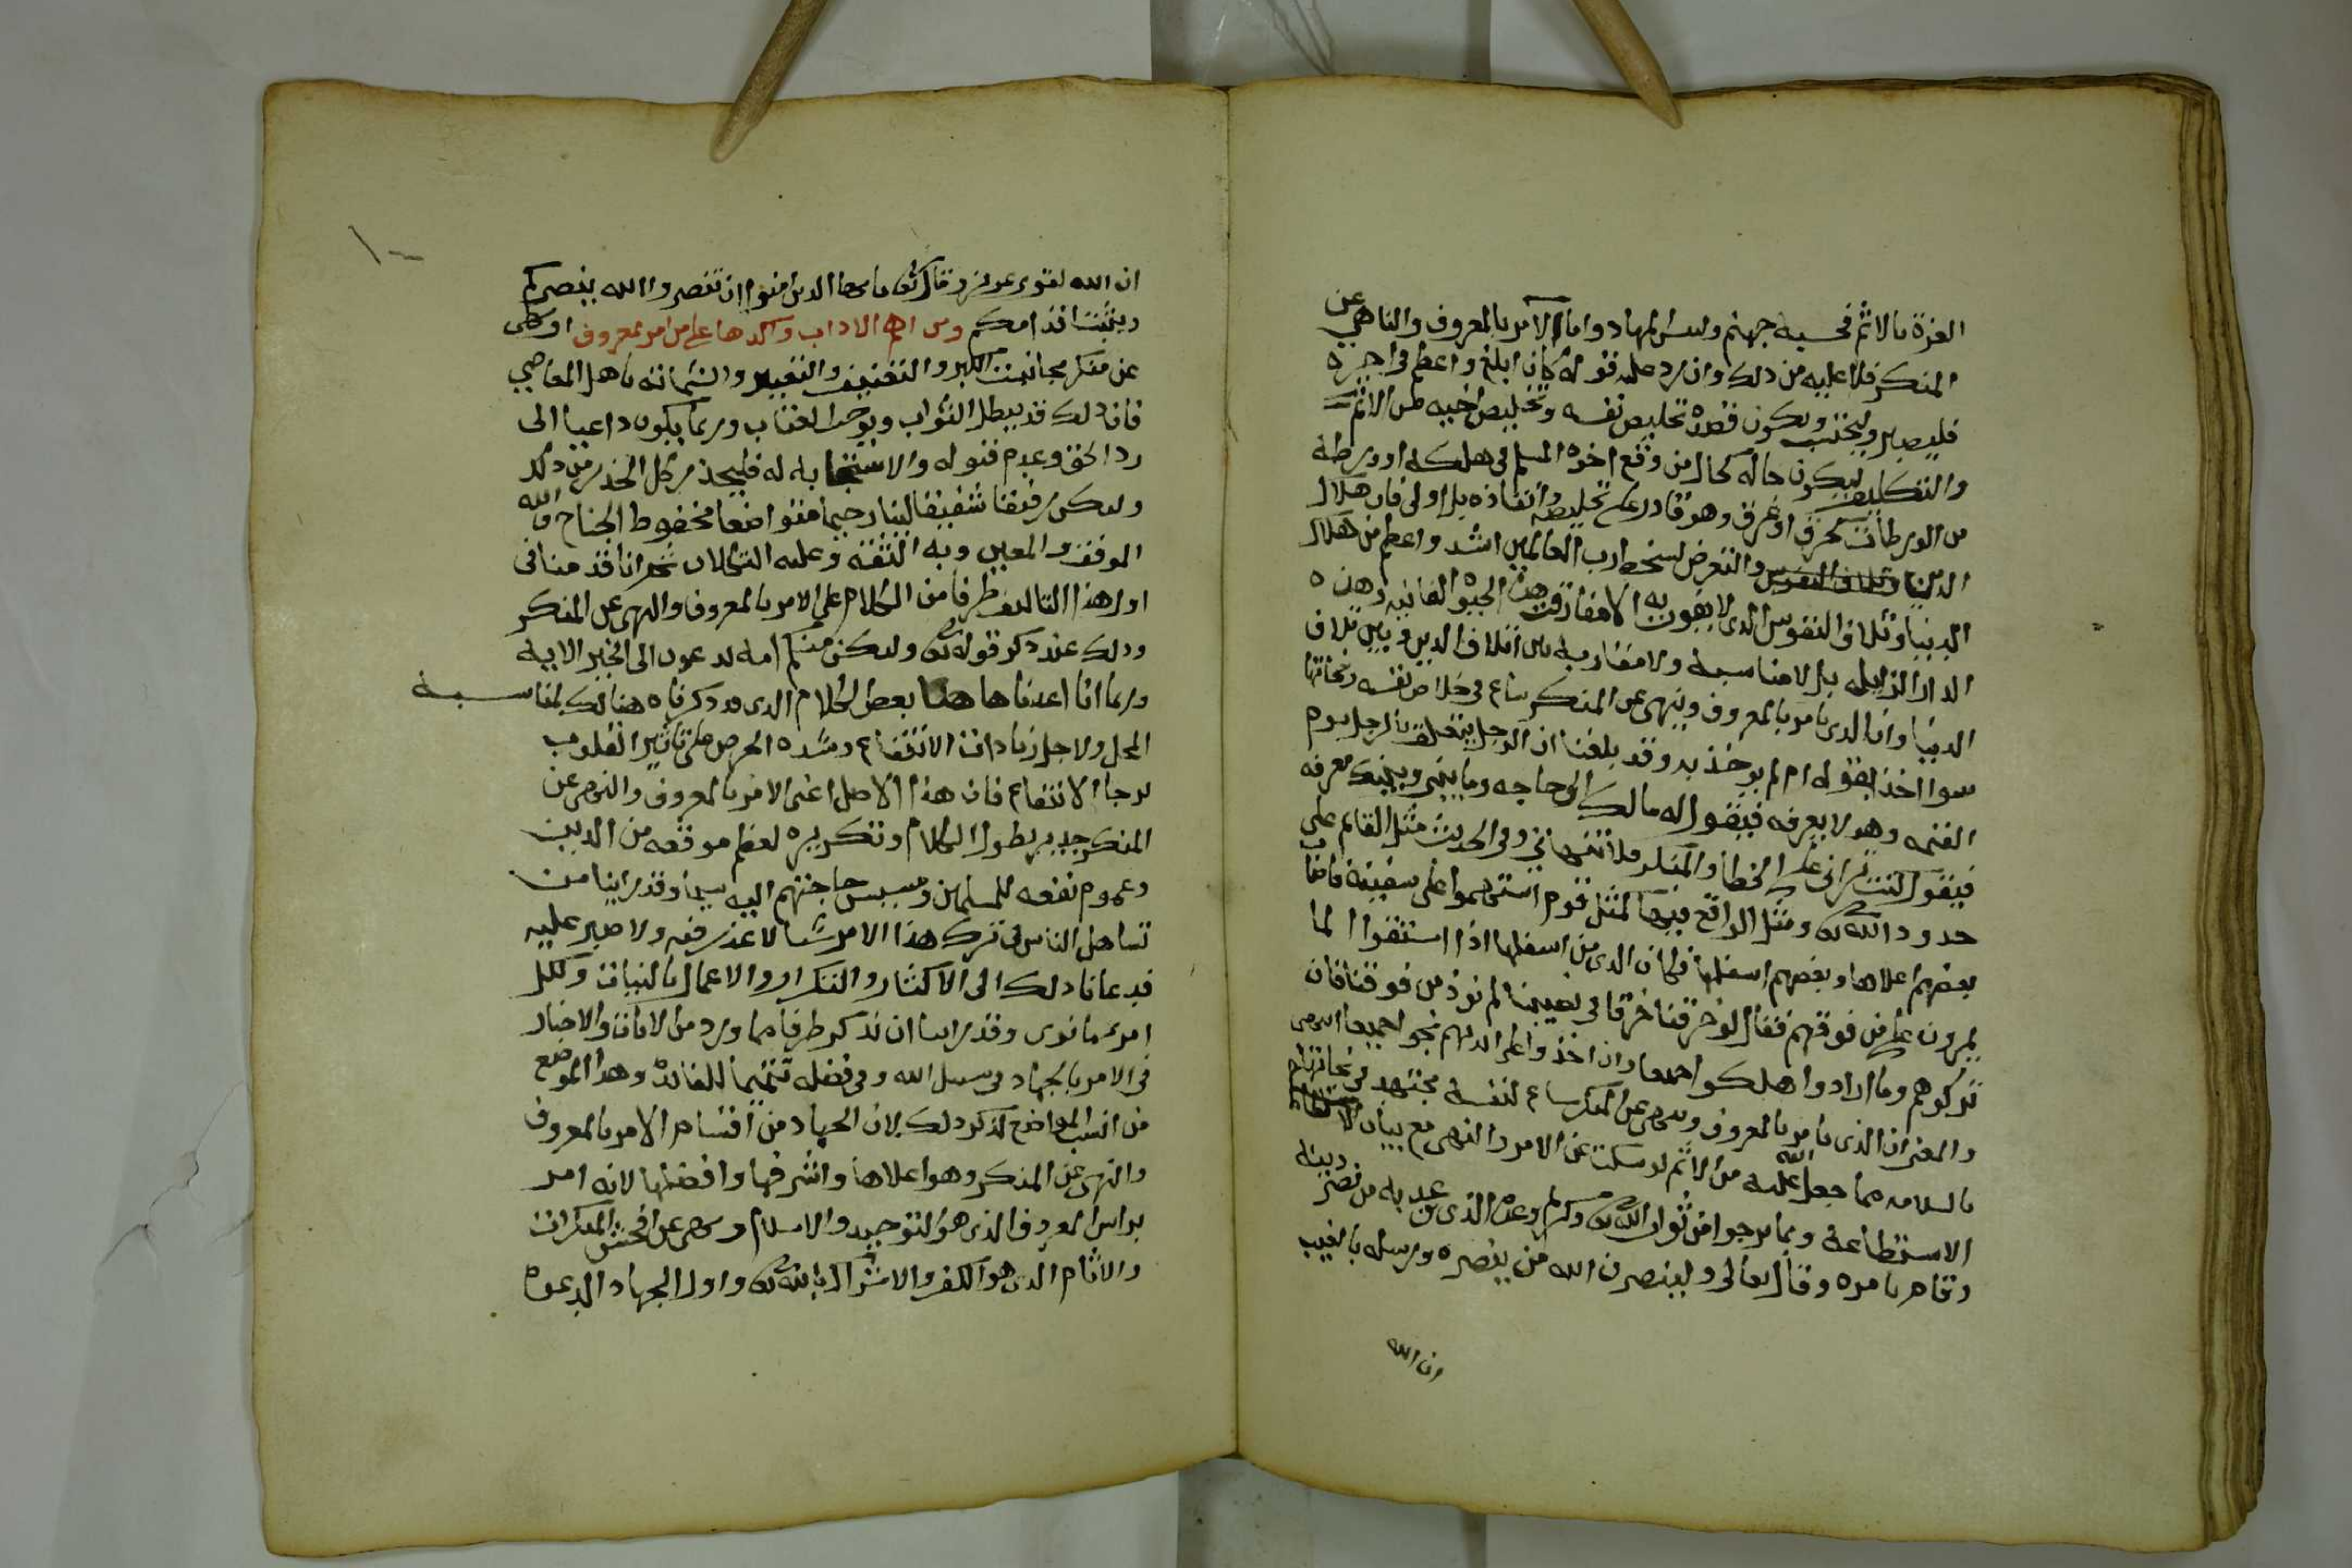 العزة بالاثم فحسبه جهنم ولبئس المهاد واما الآمر بالمعروف والناهي عن
المنكر فلا عليه من ذلك وان رد عليه قوله كان ابلغ واعظم في اجره
فليصبر وليحتسب وليكون قصده تخليص نفسه وتخليص اخيه من الاثم
والتكليف ليكون حاله كحال من وقع اخوه المسلم في هلكه او ورطة
من الورطات كحرق او غرق وهو قادر على تخليصه وانقاذه بل اولى فان هلاك
الدين والتعرض لسخط رب العالمين اشد واعظم من هلاك
الدنيا وتلاف النفوس الذي لا يفوت به الا مفارقة هذه الحيوة الفانيه وهذه
الدار الزايله بل لا مناسبة ولا مقاربة بين اتلاف الدين وبين تلاف
الدنيا وان الذى يامر بالمعروف وينهى عن المنكر ساع في خلاص نفسه ونجاتها
سوا اخذ بقوله ام لم يوخذ به وقد بلغنا ان الرجل يتعلق بالرجل يوم
القيمه وهو لا يعرفه فيقول له مالك الي حاجه وما بيني وبينك معرفه
فيقول كنت تراني على الخطأ والمنكر فلا تنهاني وفي الحديث مثل القايم على
حدود الله تعالى ومثل الواقع فيها كمثل قوم استهموا على سفينة فاصاب
بعضهم اعلاها وبعضهم اسفلها فكان الذي من اسفلها اذا استقوا الما
يمرون على من فوقهم فقال لو خرقنا خرقا في نصيبنا لم نوذ من فوقنا فان
تركوهم وما ارادوا هلكوا جميعا وان اخذوا على ايديهم نجوا جميعا انتهى
والمعنى ان الذى يامر بالمعروف وينهى عن المنكر ساع لنفسه مجتهد في نجاتها
بالسلامه مما جعل الله عليه من الاثم لو سكت عن الامر والنهي مع بيان
الاستطاعة وبما يرجوا من ثواب الله تعالى وكريم وعده الذي وعد به من نصر دينه
وقام بامره وقال تعالى ولينصرن الله من ينصره ورسله بالغيب
ان الله
ان الله لقوي عزيز وقال تعالى يا ايها الذين امنوا ان تنصروا الله ينصركم
ويثبت اقدامكم ومن اهم الاداب وآكدها على من امر بمعروف او نهى
عن منكر مجانبت الكبر والتعنيف والتعيير والشماته باهل المعاصي
فان ذلك قد يبطل الثواب ويوجب العقاب وربما يكون داعيا الى
رد الحق وعدم قبوله والاستجابه له فليحذر كل الحذر من ذلك
وليكن رفيقا شفيقا لينا رحيما متواضعا مخفوط الجناح والله
الموفق والمعين وبه الثقة وعليه التكلان ثم انا قد منا في
اول هذا التاليف طرفا من الكلام على الامر بالمعروف والنهى عن المنكر
وذلك عند ذكر قوله تعالى ولتكن منكم امه يدعون الى الخير الايه
وربما انا اعدنا ها هنا بعض الكلام الذى قد ذكرناه هنالك لمناسبة
المحل ولاجل زيادات الانتفاع وشده الحرص على تأثير القلوب
لرجا الانتفاع فان هذا الاصل اعنى الامر بالمعروف والنهى عن
المنكر جدير بطول الكلام وتكريره لعظم موقعه من الدين
وعموم نفعه للمسلمين ومسيس حاجتهم اليه سيما وقد راينا من
تساهل الناس في ترك هذا الامر شيا لا عذر فيه ولا صبر عليه
فدعانا ذلك الى الاكثار والتكرار والاعمال بالنيات ولكل
امرئ ما نوى وقد راينا ان نذكر طرفا مما ورد من الايات والاخبار
في الامر بالجهاد في سبيل الله وفي فضله تتميما للفائدة وهذا الموضع
من انسب المواضع لذكر ذلك لان الجهاد من اقسام الامر بالمعروف
والنهى عن المنكر وهو اعلاها واشرفها وافضلها لانه امر
براس المعروف الذي هو التوحيد والاسلام ونهى عن افحش المنكرات
والاثام الذى هو الكفر والاشراك بالله تعالى واول الجهاد الدعوة